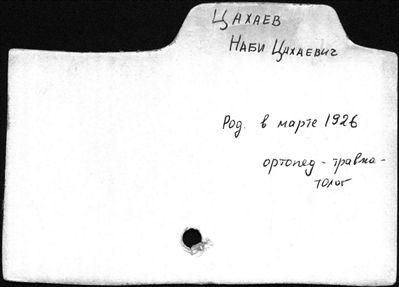 ЦАХАЕВ
НАБИ ЦАХАЕВИЧ
Род. в марте 1926
ортопед - травма-
толог